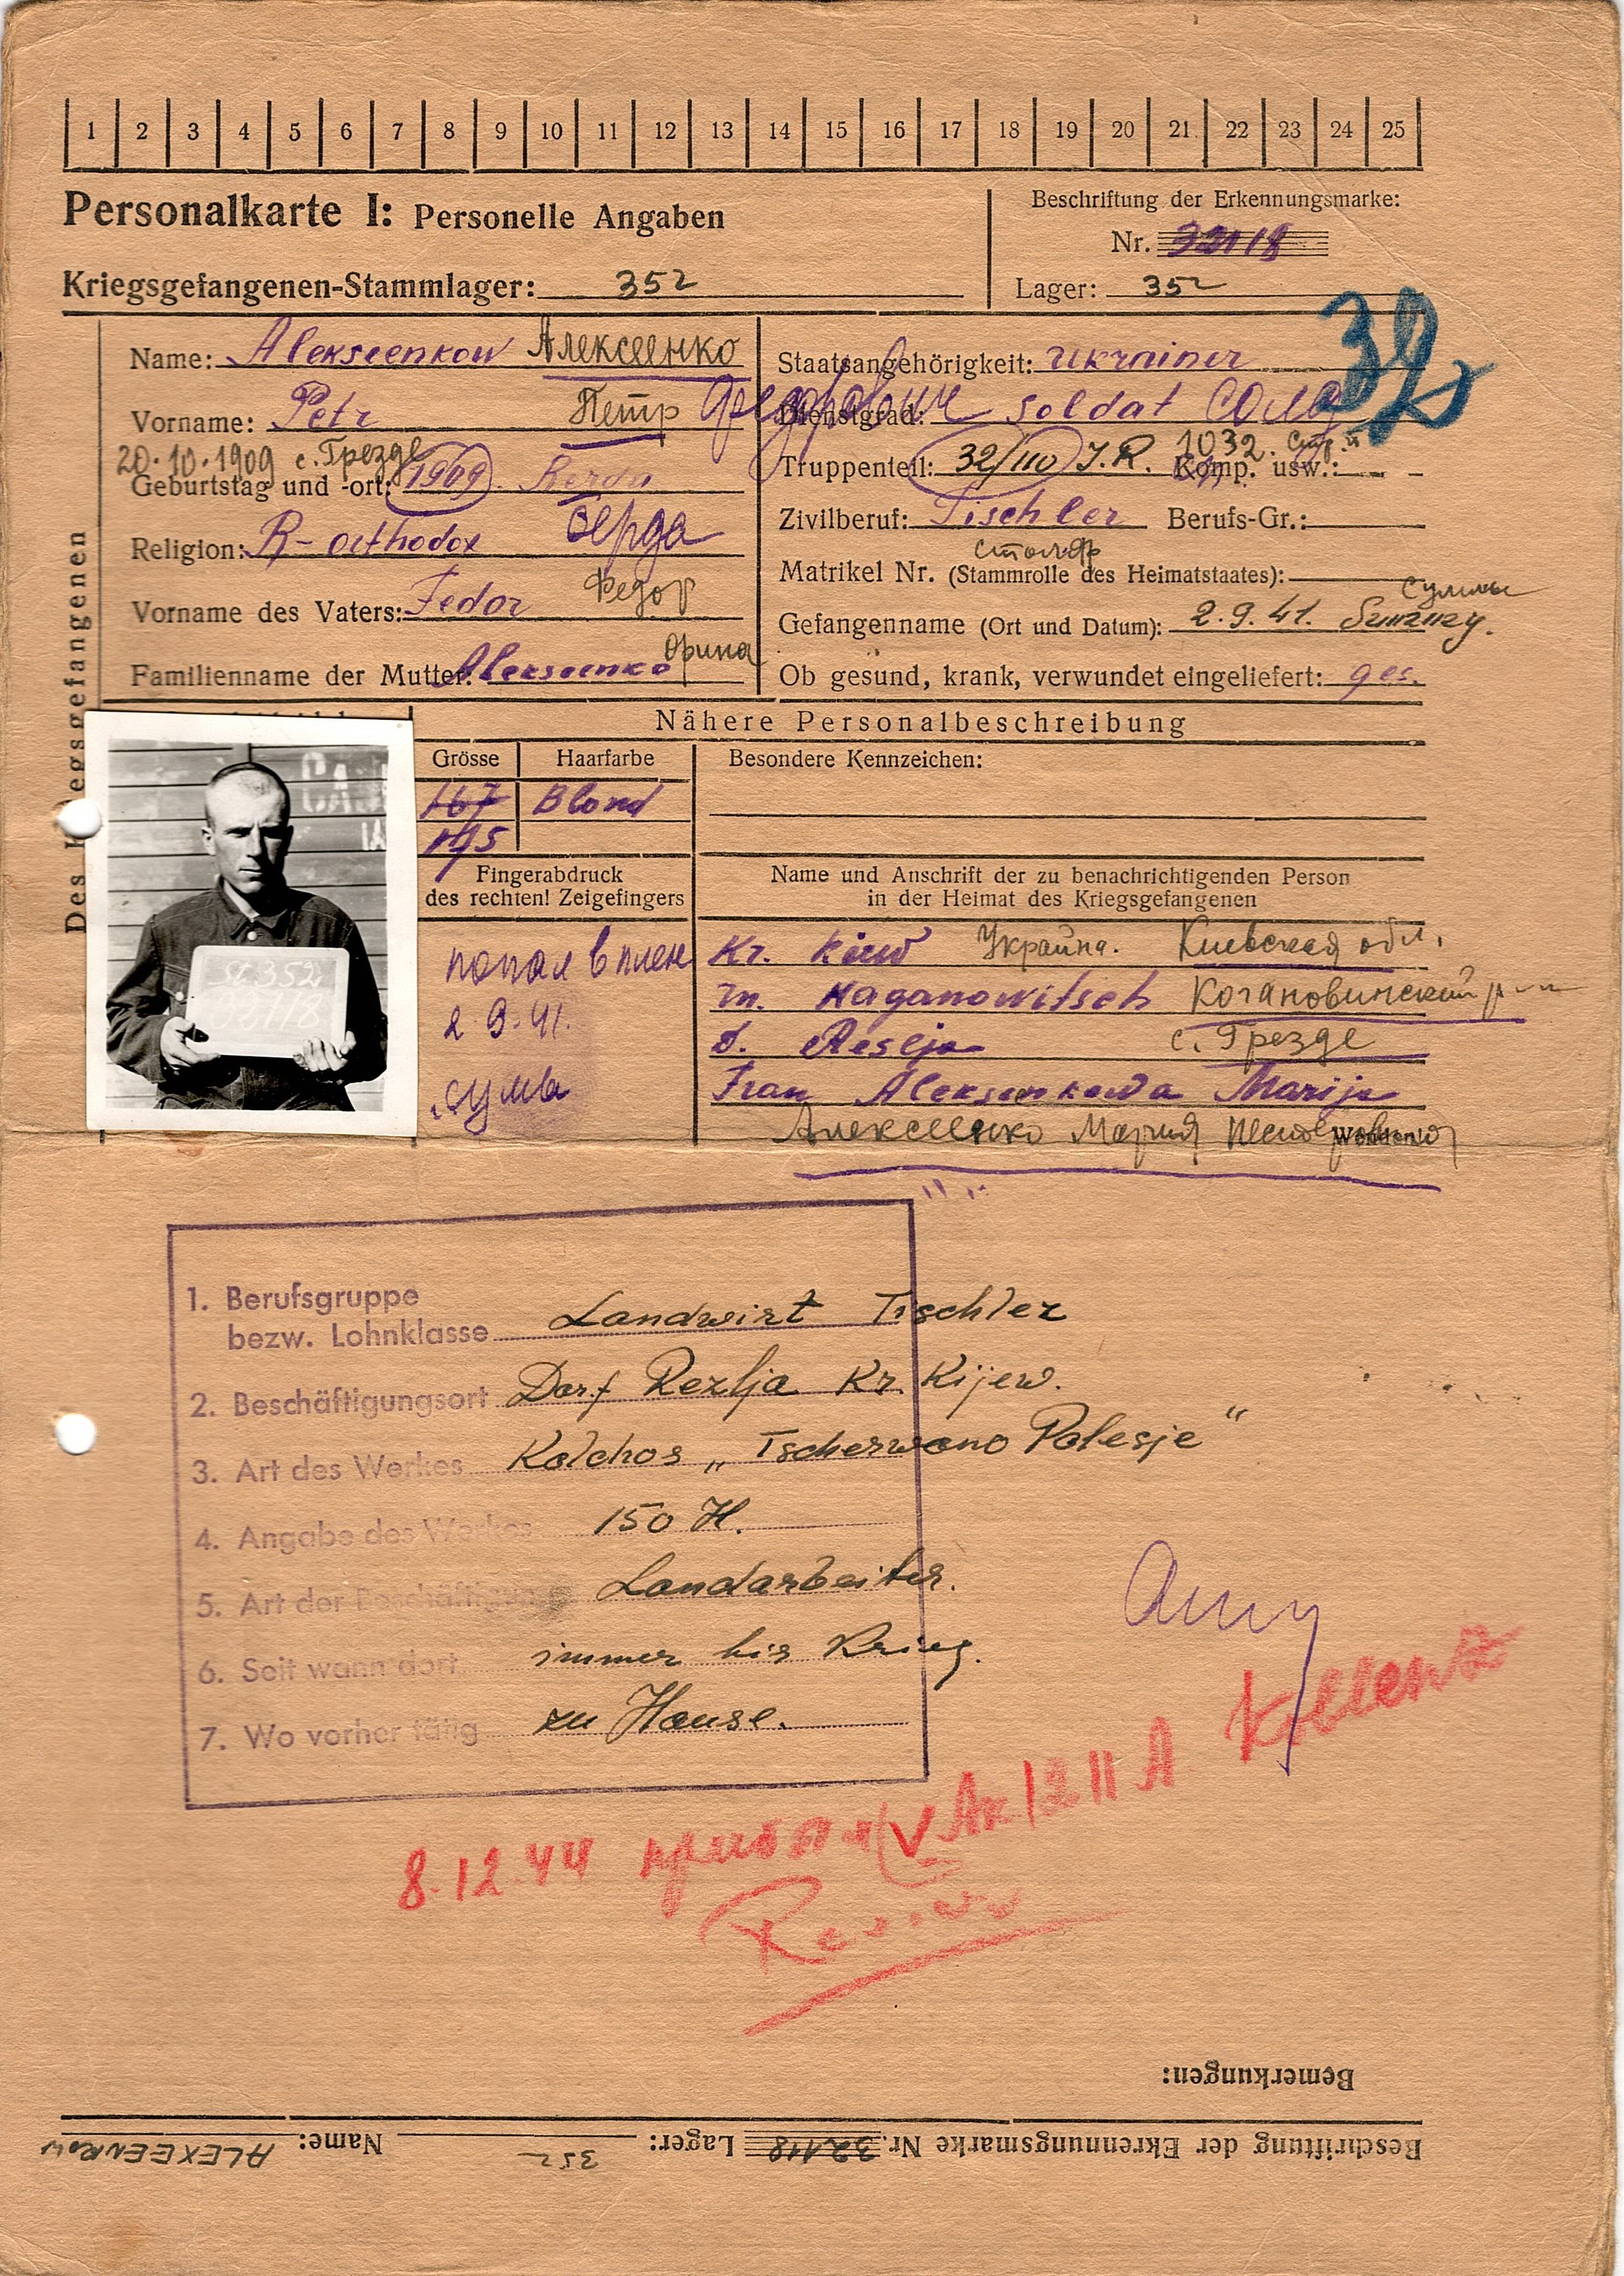 1 2 3 4 5 6 7 8 9 10 11 12 13 14 15 16 17 18 19 20 21 22 23 24 25
Personalkarte I: Personelle Angaben
Beschriftung der Erkennungsmarke:
Nr. 32118
Kriegsgefangenen-Stammlager: 352
Lager: 352
32
Des Kriegsgefangenen
Name: Alekseenkow Алексеенко
Vorname: Petr Петр Федорович
20.10.1909 с. Грезде
Geburtstag und -ort: 1909. Berda
Religion: R-orthodox Берда
Vorname des Vaters: Fedor Федор
Familienname der Mutter: Alekseenko Орина
Staatsangehörigkeit: Ukrainer
Dienstgrad: soldat солд
1032 стр. п
Truppenteil: 32/110 J.R. Komp. usw.:
Zivilberuf: Tischler Berufs-Gr.:
столяр
Matrikel Nr. (Stammrolle des Heimatstaates):
Суммы
Gefangenname (Ort und Datum): 2.9.41.
Ob gesund, krank, verwundet eingeliefert: ges.
Nähere Personalbeschreibung
Grösse Haarfarbe Besondere Kennzeichen:
167 Blond
175
St. 352
Fingerabdruck
des rechten! Zeigefingers
попал в плен
2.9.41.
сумы
Name und Anschrift der zu benachrichtigenden Person
in der Heimat des Kriegsgefangenen
Kr. Kiew Украина. Киевская обл.
m. Kaganowitsch Когановический р-н
d. Resljа с. Грезде
Frau Aleksenkowa Marija
Алексеенко Мария
Wenden!
1. Berufsgruppe
bezw. Lohnklasse Landwirt Tischler
2. Beschäftigungsort Dorf Rezlja Kr. Kijew.
3. Art des Werkes Kolchos „Tscherwono Polesje“
4. Angabe des Werkes 150 H.
5. Art der Beschäftigung Landarbeiter.
6. Seit wann dort immer bis Krieg.
7. Wo vorher tätig zu Hause.
8.12.44
Bemerkungen:
Beschriftung der Ekrennungsmarke Nr. 32118 Lager: 352 Name: ALEXEENKOW